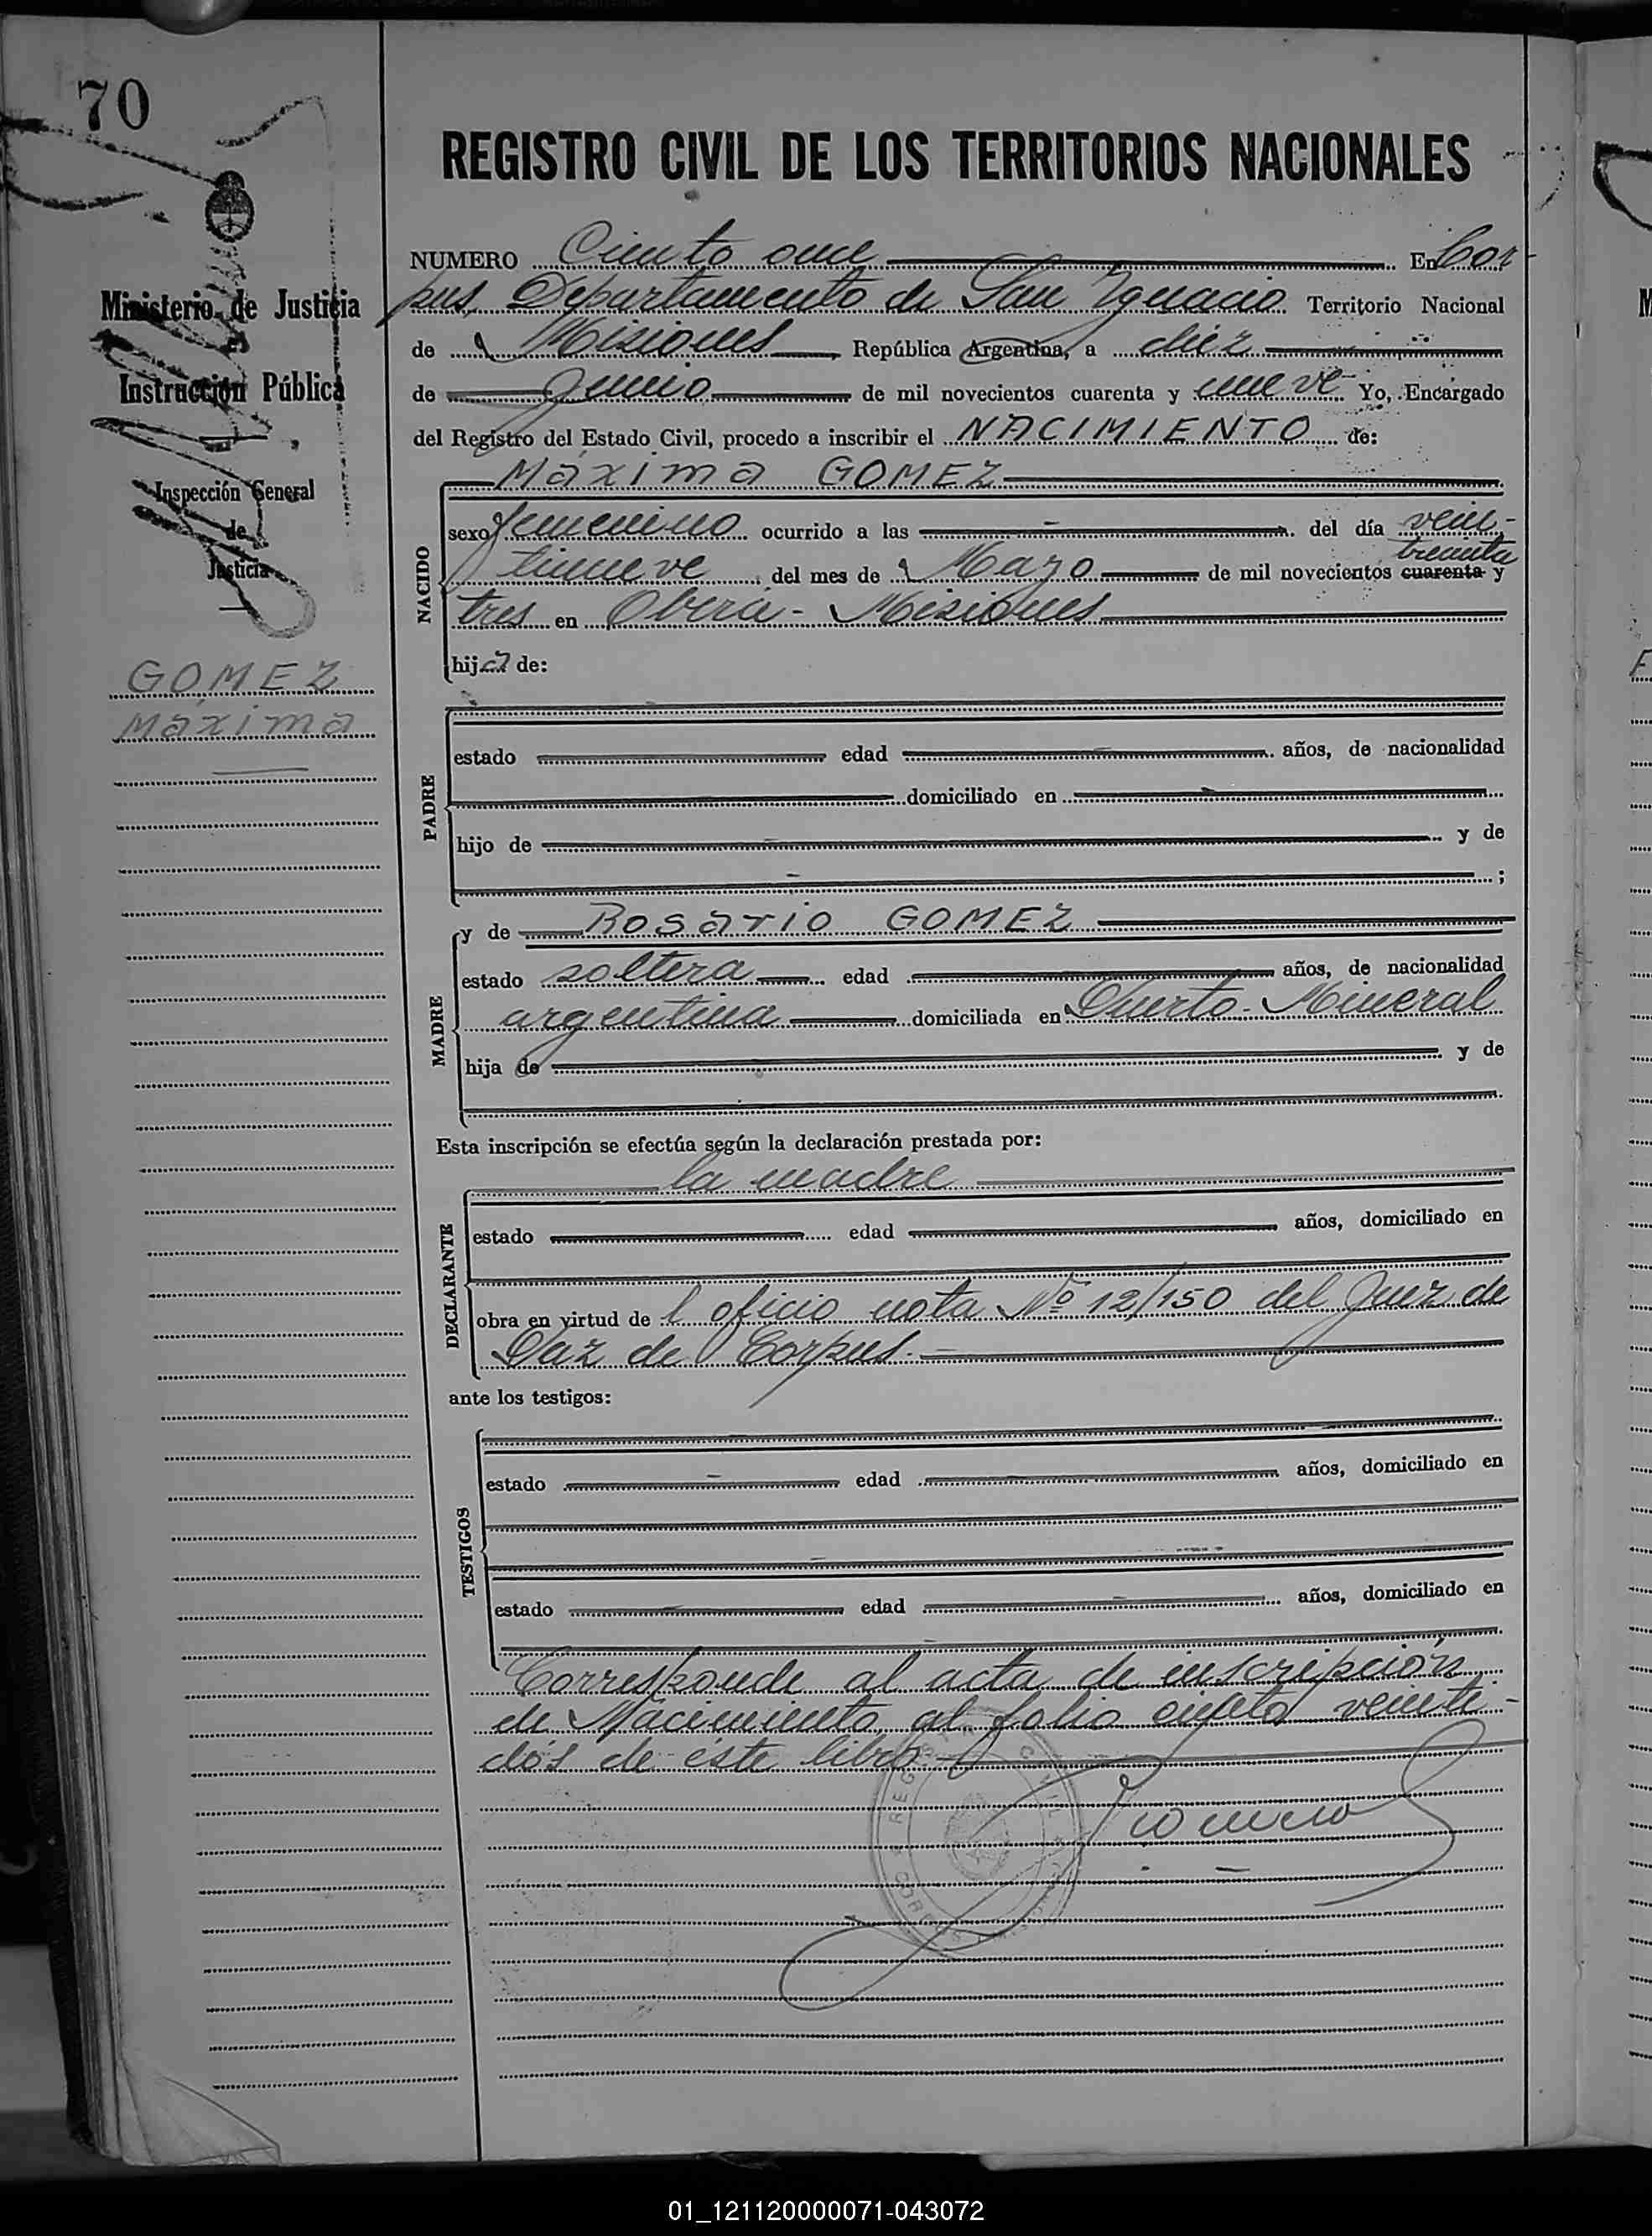 70
REGISTRO CIVIL DE LOS TERRITORIOS NACIONALES
Ministerio de Justicia
Instrucción Pública
Inspección General
de
Justicia
GOMEZ
Máxima
NUMERO Ciento once En Cor-
pus Departamento de San Ignacio Territorio Nacional
de Misiones República Argentina, a diez
de Junio de mil novecientos cuarenta y nueve Yo, Encargado
del Registro del Estado Civil, procedo a inscribir el NACIMIENTO de:
Máxima GOMEZ
NACIDO
sexo femenino ocurrido a las del día vein-
treinta
tinueve del mes de Mayo de mil novecientos cuarenta y
tres en Oberá - Misiones
hija de:
PADRE
estado edad años, de nacionalidad
domiciliado en
hijo de y de
;
MADRE
y de Rosario GOMEZ
estado soltera edad años, de nacionalidad
argentina domiciliada en Puerto - Mineral
hija de y de
Esta inscripción se efectúa según la declaración prestada por:
la madre
DECLARANTE
estado edad años, domiciliado en
obra en virtud de l oficio nota Nº 12/150 del Juez de
Paz de Corpus.
ante los testigos:
TESTIGOS
estado edad años, domiciliado en
estado edad años, domiciliado en
Corresponde al acta de inscripción
de Nacimiento, al folio ciento veinti-
dós de éste libro
01_121120000071-043072